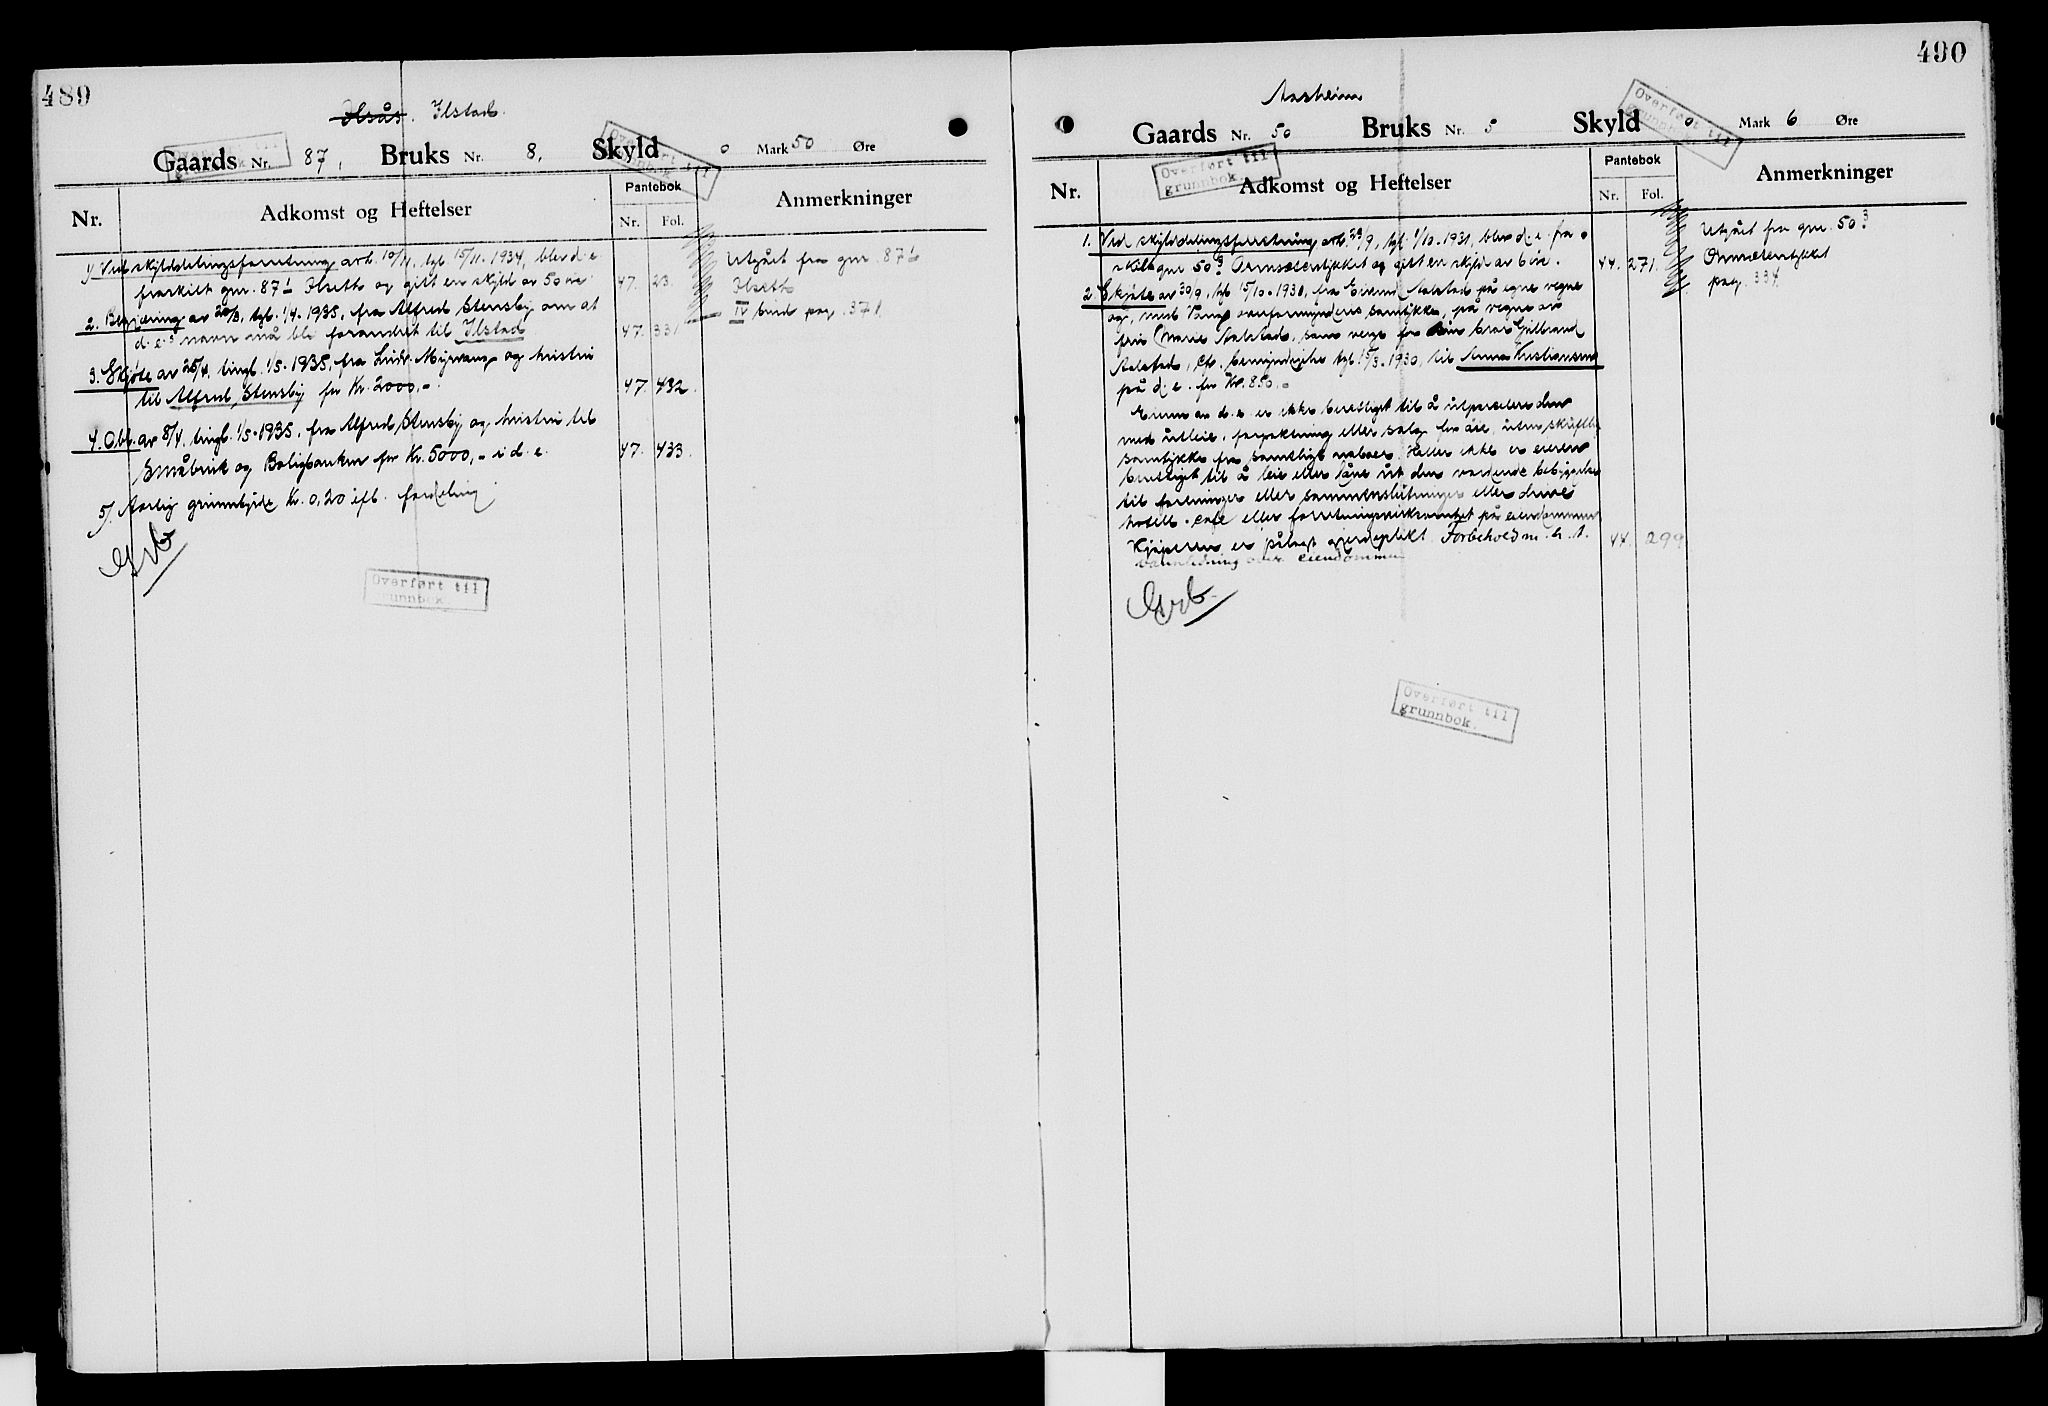 489
Ilsås. Ilstad.
Gaards Nr. 87, Bruks Nr. 8, Skyld 0 Mark 50 Øre
Overført til grunnbok.
Nr.
Adkomst og Heftelser
Pantebok
Nr. Fol.
Anmerkninger
1) Ved skylddelingsforretning avh. 10/11, tgl. 15/11-1934, blev d. e.
fraskilt gnr. 87/1 Ilseth og gitt en skyld av 50 øre. 47. 23.
2. Begjæring av 20/3, tgl. 1/4-1935, fra Alfred Stensby om at
d. e.s navn må bli forandret til Ilstad 47. 331
3. Skjøte av 25/4, tingl. 1/5-1935, fra Ludv. Myrvang og hustru
til Alfred Stensby for Kr. 2000,- 47. 432.
4. Obl. av 8/4, tingl. 1/5-1935, fra Alfred Stensby og hustru til
Småbruk og Boligbanken for Kr. 5000,- i d. e. 47. 433.
5). Aarlig grunnbyrde Kr. 0,20 efl. fordeling
Grb
Utgått fra gnr. 87/1
Ilseth
IV bind pag. 371
Overført til
grunnbok.
490
Aasheim
Gaards Nr. 50 Bruks Nr. 5 Skyld 0 Mark 6 Øre
Overført til
grunnbok.
Overført til
grunnbok.
Nr.
Adkomst og Heftelser
Pantebok
Nr. Fol.
Anmerkninger
1. Ved skylddelingsforretning avh. 29/9, tgl. 1/10-1931, blev d. e. fra-
skilt gnr. 50/3 Ormsæterstykket og gitt en skyld av 6 øre. 44. 271.
2. Skjøte av 30/9, tgl. 15/10-1931, fra Eivind Aalstad på egne vegne
og, med Vang overformynderis samtykke, på vegne av
frue Marie Aalstad, som verge for sin bror Gilbrand
Aalstad, cfr. bemyndigelse tgl. 15/3-1930, til Anna Kristiansen
på d. e. for Kr. 850,-
Eieren av d. e. er ikke berettiget til å utparselere den
ved utleie, forpaktning eller salg for øie, uten skriftlig
samtykke fra samtlige naboer. Heller ikke er eieren
berettiget til å leie eller låne ut den værende bebyggelse
til foreninger eller sammenslutninger eller drive
hotell- cafe eller forretningsvirksomhet på eiendommen
Kjøperen er pålagt gjerdeplikt. Forbehold m. h. t. 44. 299
vannledning over eiendommen
Grb.
Utgått fra gnr. 50/3
Ormsæterstykket
pag. 334
Overført til
grunnbok.